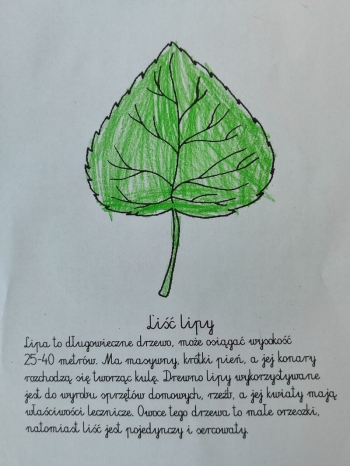 Liść lipy
Lipa to długowieczne drzewo, może osiągać wysokość
25-40 metrów. Ma masywny, krótki pień, a jej konary
rozchodzą się tworząc kulę. Drewno lipy wykorzystywane
jest do wyrobu sprzętów domowych, rzeźb, a jej kwiaty mają
właściwości lecznicze. Owoce tego drzewa to małe orzeszki,
natomiast liść jest pojedynczy i sercowaty.